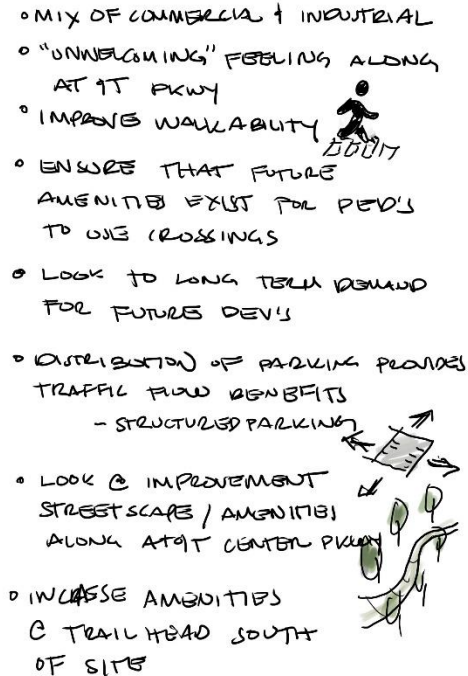 • MIX OF COMMERCIAL & INDUSTRIAL
• "UNWELCOMING" FEELING ALONG
AT&T PKWY
• IMPROVE WALKABILITY
• ENSURE THAT FUTURE
AMENITIES EXIST FOR PED'S
TO USE CROSSINGS
• LOOK TO LONG TERM DEMAND
FOR FUTURE DEV'S
• DISTRIBUTION OF PARKING PROVIDES
TRAFFIC FLOW BENEFITS
- STRUCTURED PARKING
• LOOK @ IMPROVEMENT
STREETSCAPE / AMENITIES
ALONG AT&T CENTER PKWY
• INCREASE AMENITIES
@ TRAIL HEAD SOUTH
OF SITE